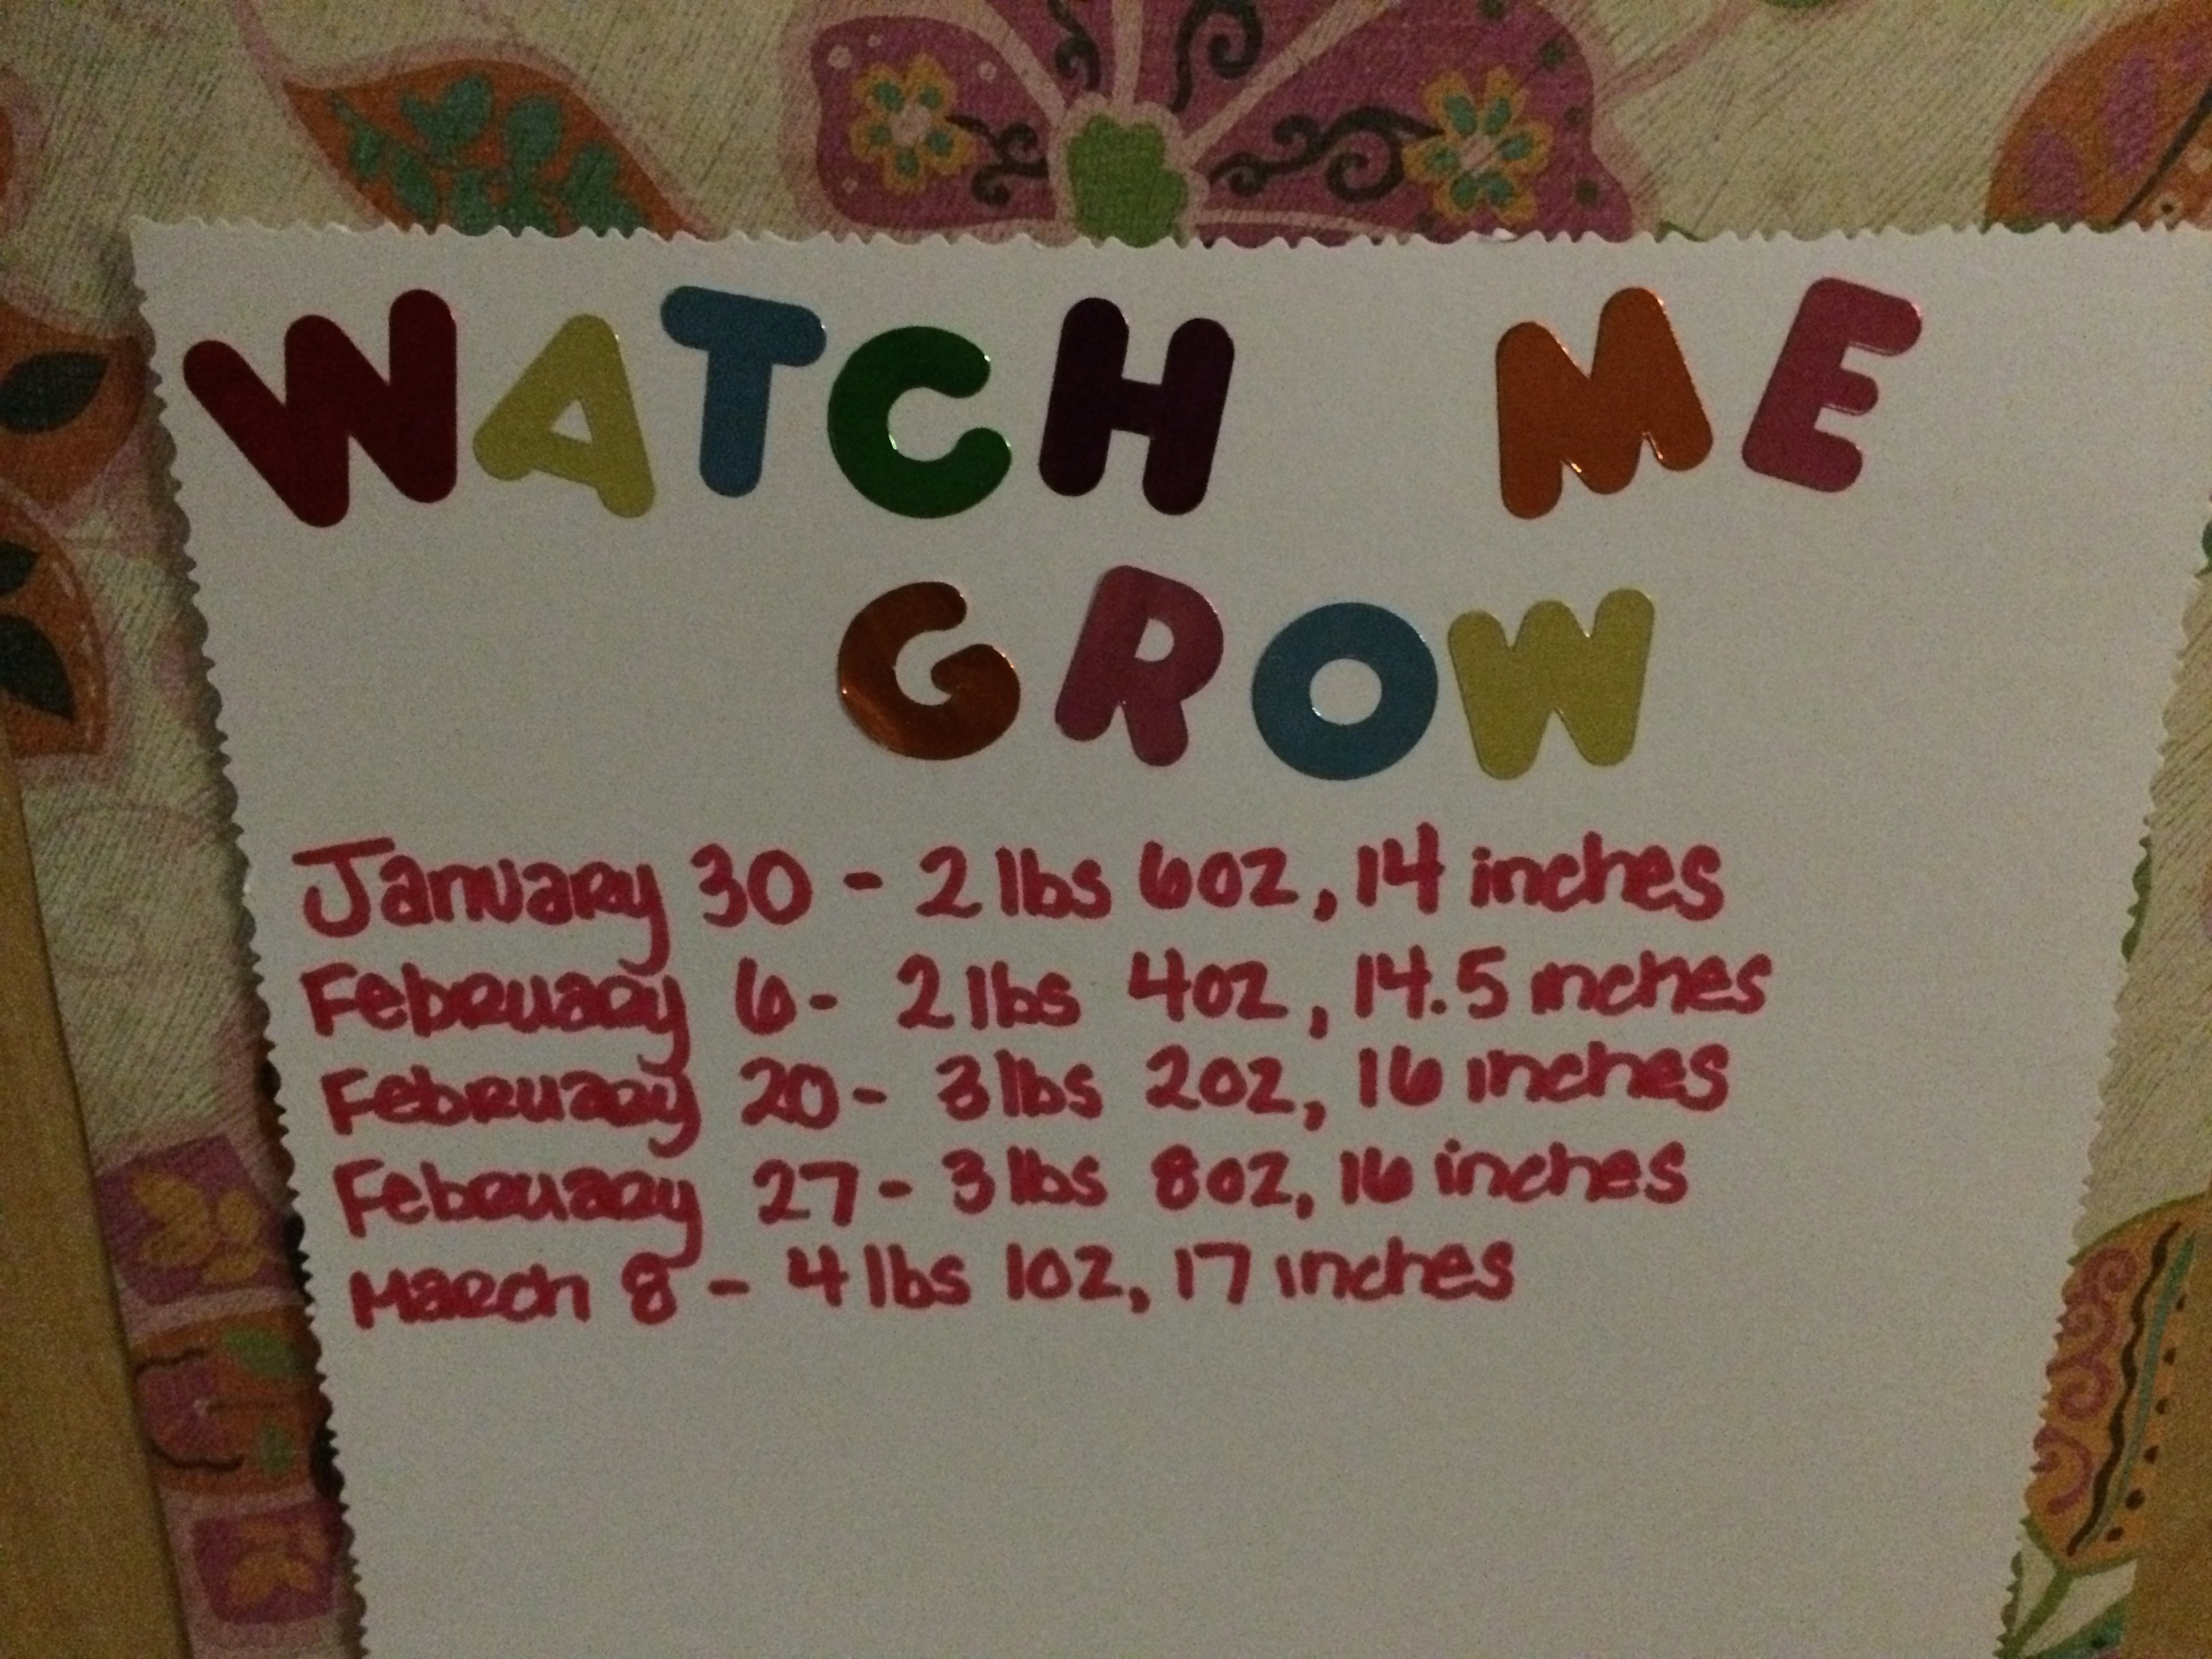 WATCH ME
GROW
January 30 - 2 lbs 6oz, 14 inches
February 6 - 2 lbs 4oz, 14.5 inches
February 20 - 3 lbs 2oz, 16 inches
February 27 - 3 lbs 8oz, 16 inches
March 8 - 4 lbs 1oz, 17 inches